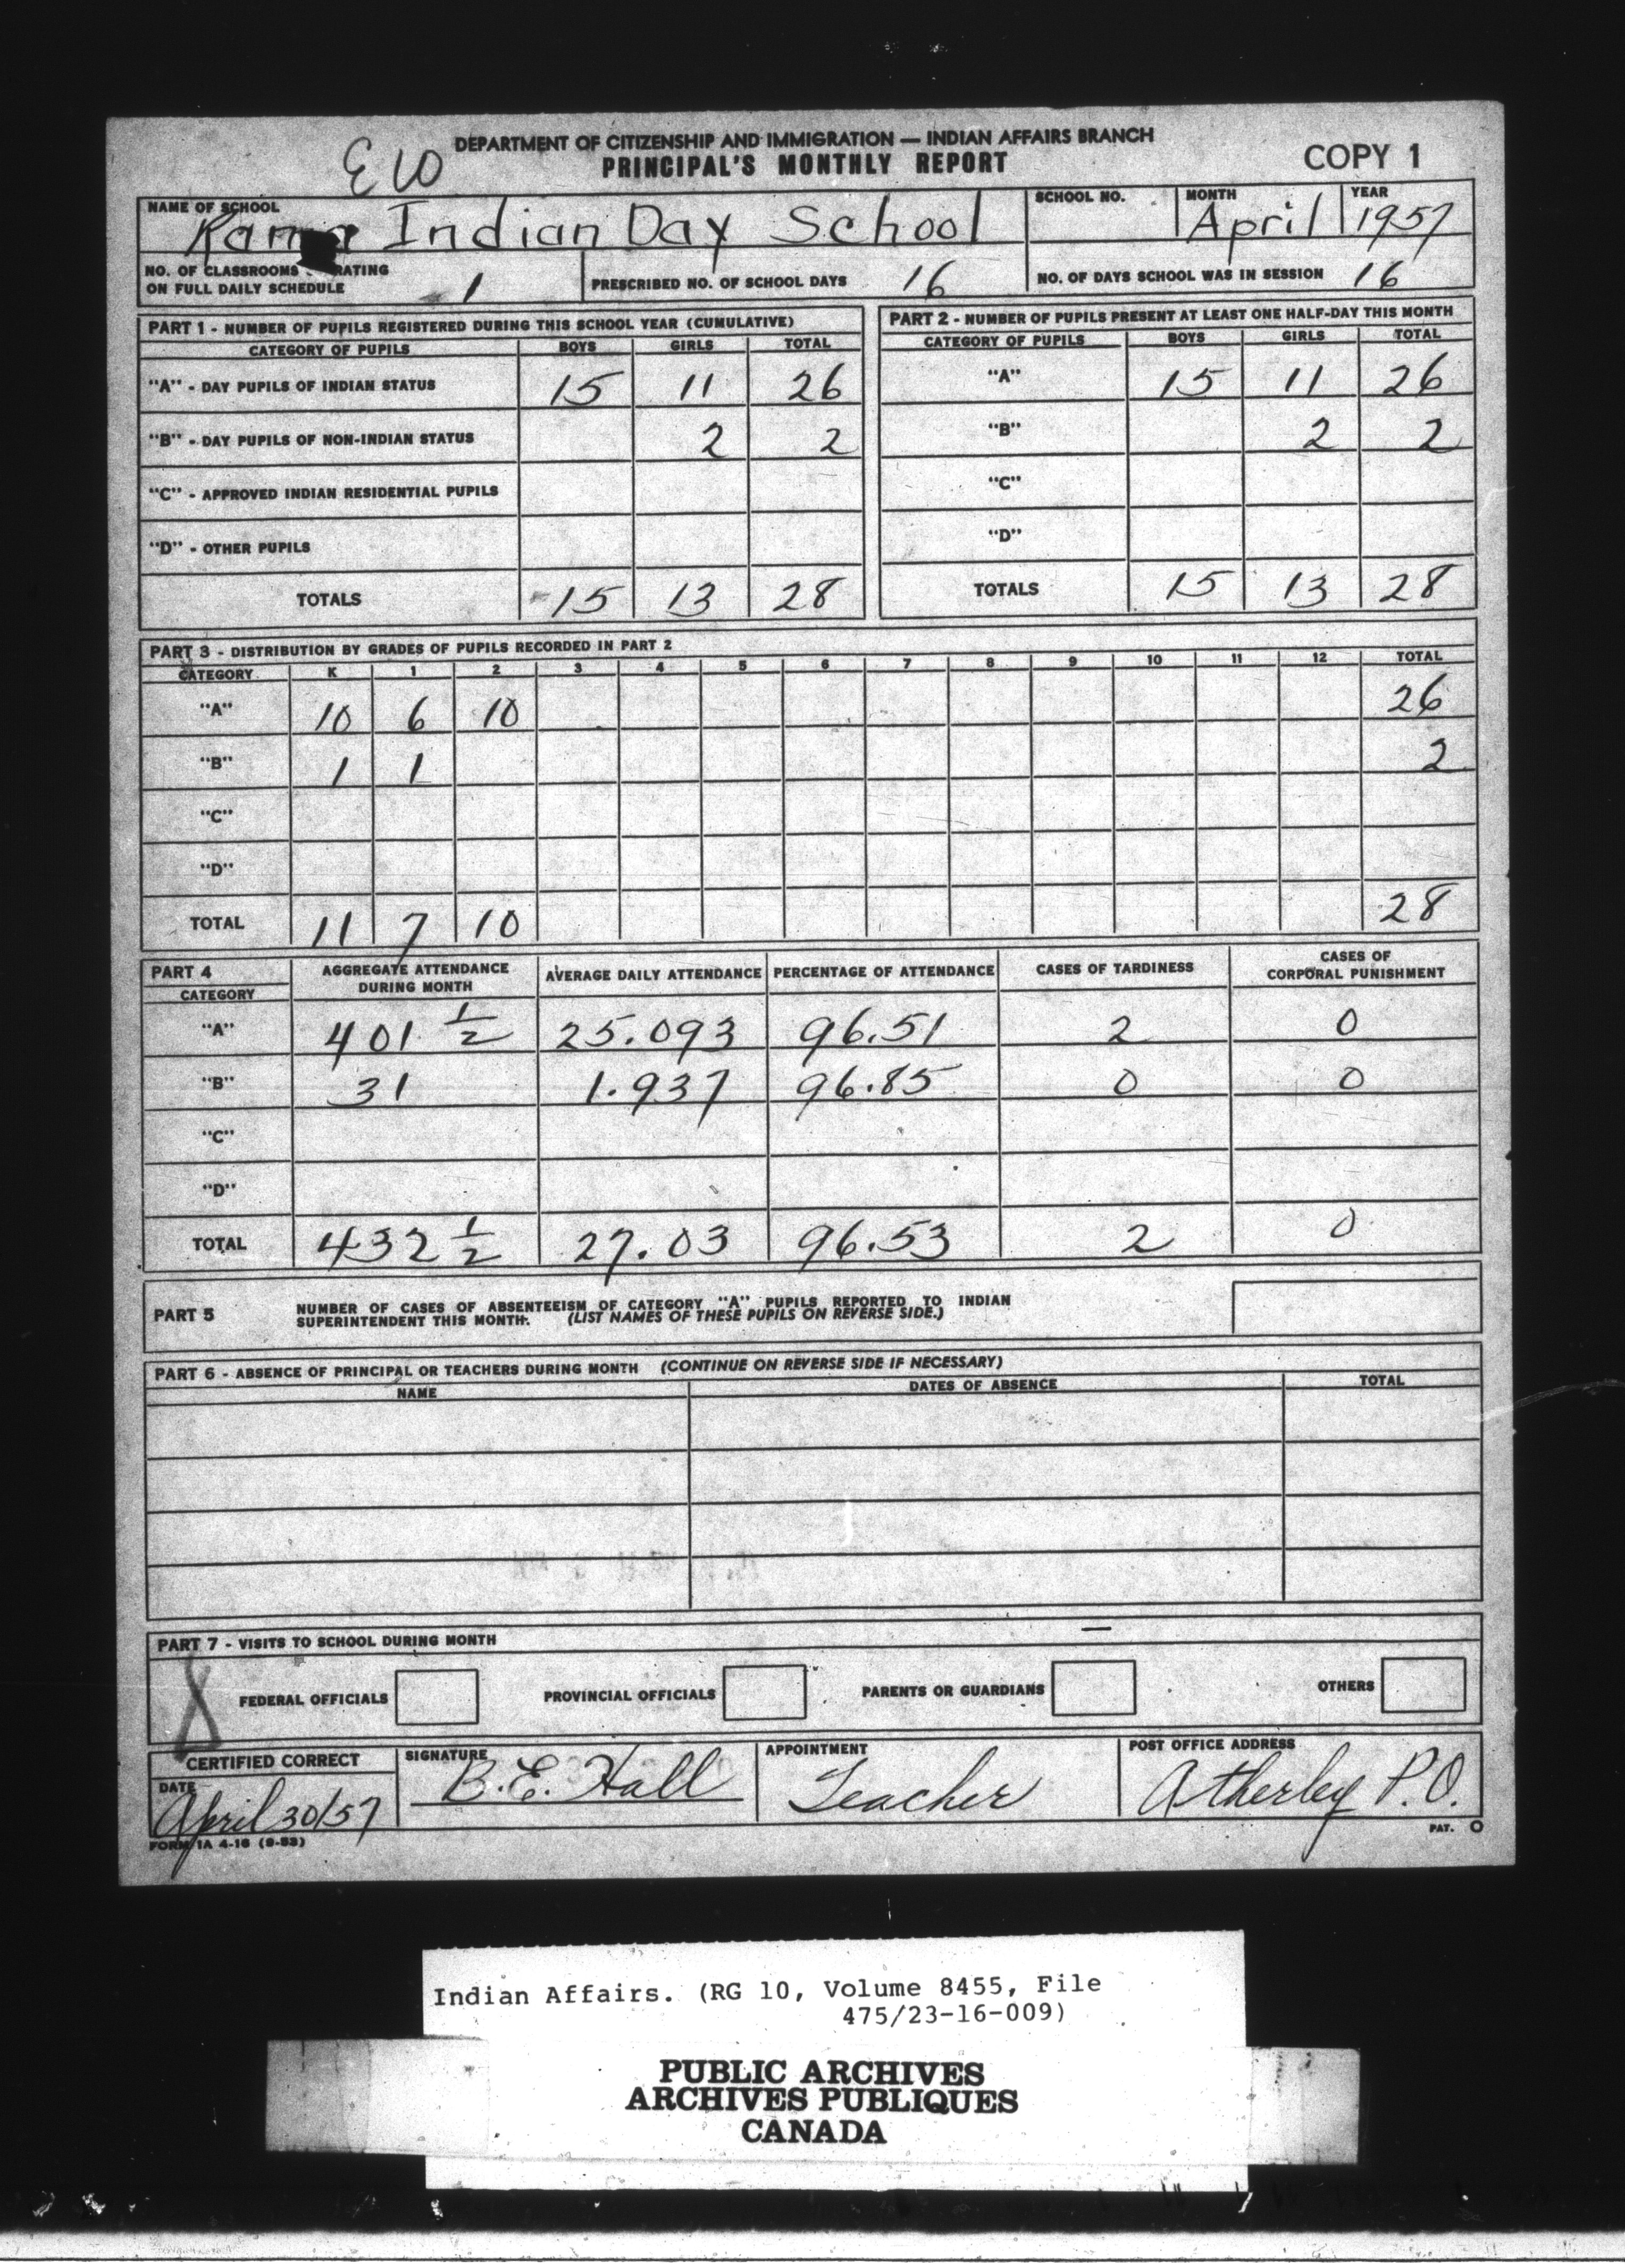 DEPARTMENT OF CITIZENSHIP AND IMMIGRATION — INDIAN AFFAIRS BRANCH
PRINCIPAL'S MONTHLY REPORT
COPY 1
NAME OF SCHOOL Rama Indian Day School SCHOOL NO. MONTH April YEAR 1957
NO. OF CLASSROOMS RATING ON FULL DAILY SCHEDULE 1 PRESCRIBED NO. OF SCHOOL DAYS 16 NO. OF DAYS SCHOOL WAS IN SESSION 16
PART 1 - NUMBER OF PUPILS REGISTERED DURING THIS SCHOOL YEAR (CUMULATIVE)
CATEGORY OF PUPILS BOYS GIRLS TOTAL
"A" - DAY PUPILS OF INDIAN STATUS 15 11 26
"B" - DAY PUPILS OF NON-INDIAN STATUS 2 2
"C" - APPROVED INDIAN RESIDENTIAL PUPILS
"D" - OTHER PUPILS
TOTALS 15 13 28
PART 2 - NUMBER OF PUPILS PRESENT AT LEAST ONE HALF-DAY THIS MONTH
CATEGORY OF PUPILS BOYS GIRLS TOTAL
"A" 15 11 26
"B" 2 2
"C"
"D"
TOTALS 15 13 28
PART 3 - DISTRIBUTION BY GRADES OF PUPILS RECORDED IN PART 2
CATEGORY K 1 2 3 4 5 6 7 8 9 10 11 12 TOTAL
"A" 10 6 10 26
"B" 1 1 2
"C"
"D"
TOTAL 11 7 10 28
PART 4
CATEGORY AGGREGATE ATTENDANCE DURING MONTH AVERAGE DAILY ATTENDANCE PERCENTAGE OF ATTENDANCE CASES OF TARDINESS CASES OF CORPORAL PUNISHMENT
"A" 401 1/2 25.093 96.51 2 0
"B" 31 1.937 96.85 0 0
"C"
"D"
TOTAL 432 1/2 27.03 96.53 2 0
PART 5 NUMBER OF CASES OF ABSENTEEISM OF CATEGORY "A" PUPILS REPORTED TO INDIAN
SUPERINTENDENT THIS MONTH. (LIST NAMES OF THESE PUPILS ON REVERSE SIDE.)
PART 6 - ABSENCE OF PRINCIPAL OR TEACHERS DURING MONTH (CONTINUE ON REVERSE SIDE IF NECESSARY)
NAME DATES OF ABSENCE TOTAL
PART 7 - VISITS TO SCHOOL DURING MONTH —
8
FEDERAL OFFICIALS PROVINCIAL OFFICIALS PARENTS OR GUARDIANS OTHERS
CERTIFIED CORRECT SIGNATURE B.E. Hall APPOINTMENT Teacher POST OFFICE ADDRESS Atherley P.O.
DATE April 30/57
FORM 1A 4-16 (9-53)
PAT. O
Indian Affairs. (RG 10, Volume 8455, File
475/23-16-009)
PUBLIC ARCHIVES
ARCHIVES PUBLIQUES
CANADA